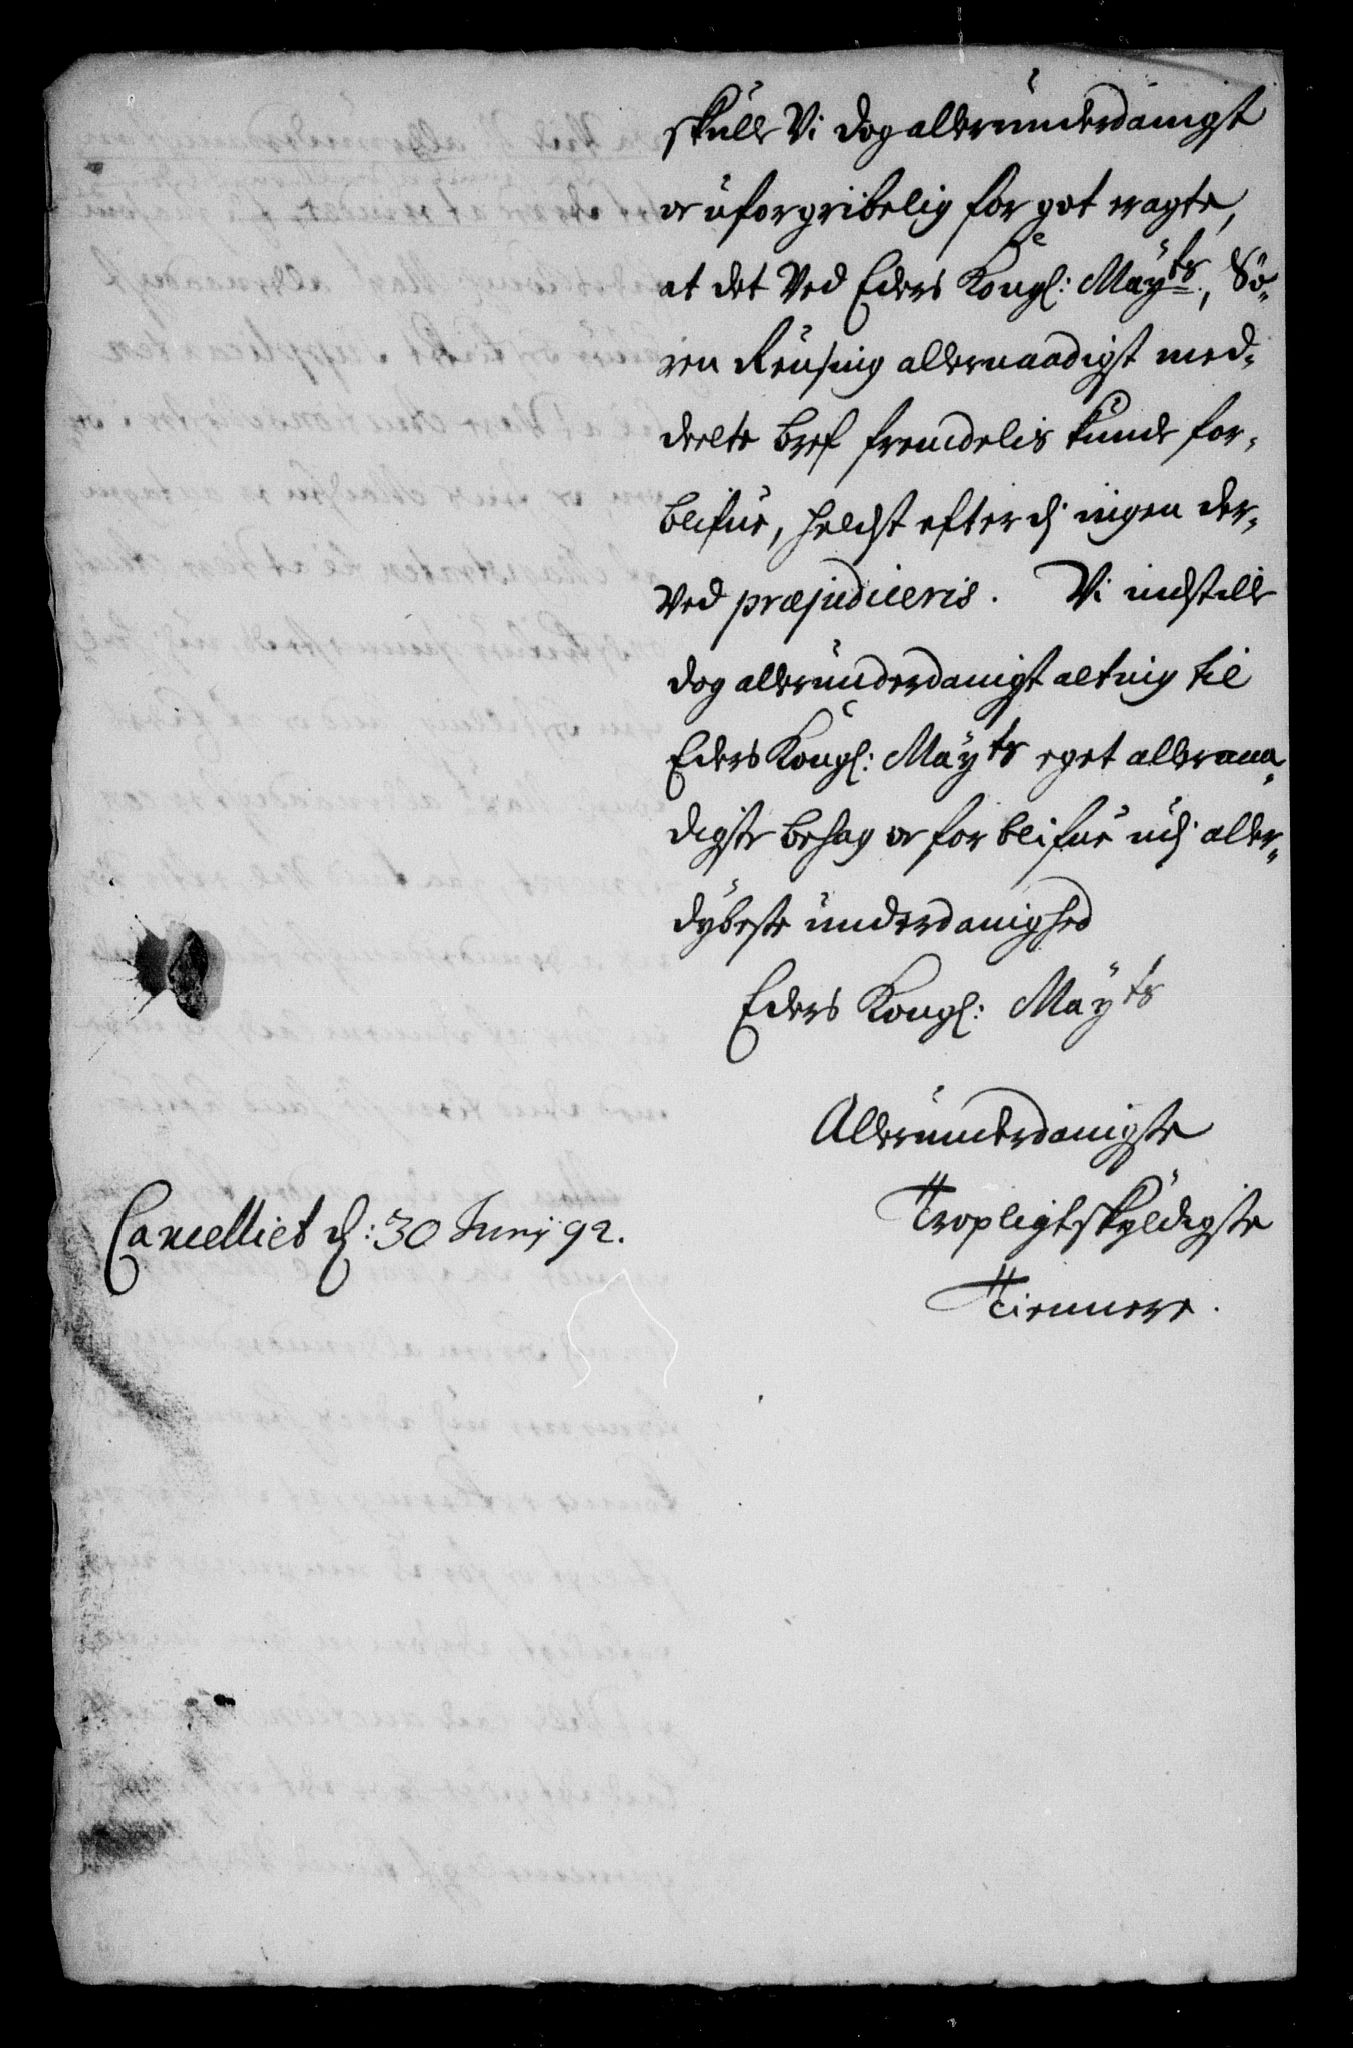 skulle Vi dog allerunderdanigst
oc uforgribelig for got eragte,
at det Ved Eders Kongl: Mayts, Sø-
ren Reusing allernaadigst med-
deelte bref fremdelis kunde for-
blifue, helst efterdj ingen der-
Ved præjudiceris. Vi indstille
dog allerunderdanigst alting til
Eders Kongl: Mayts eget allernaa-
digste behag oc forblifue udj aller-
dybeste underdanighed
Eders Kongl: Mayts
Allerunderdanigste
Tropligtskyldigste
Tiennere.
Cancelliet d: 30 Junj 92.